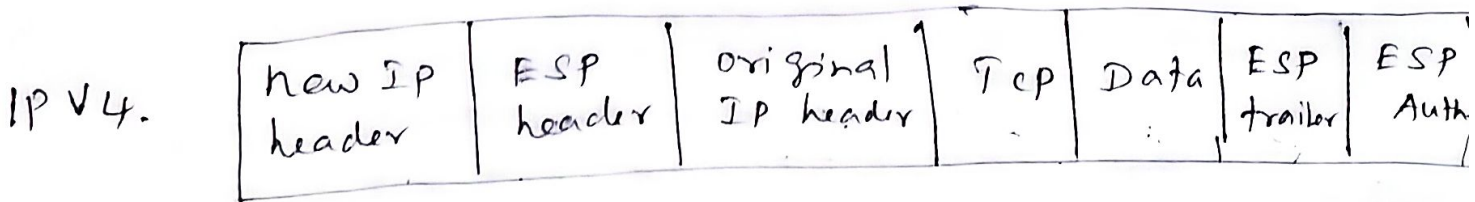 IPV4.
new IP header
ESP header
original IP header
Tcp
Data
ESP trailer
ESP Auth